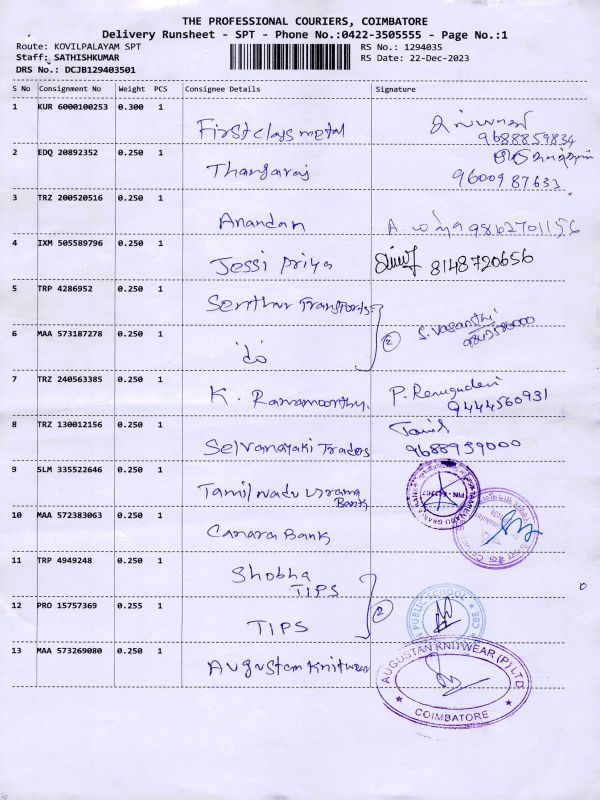 THE PROFESSIONAL COURIERS, COIMBATORE
Delivery Runsheet - SPT - Phone No.:0422-3505555 - Page No.:1
Route: KOVILPALAYAM SPT
RS No.: 1294035
Staff: SATHISHKUMAR
RS Date: 22-Dec-2023
DRS No.: DCJB129403501
S No Consignment No Weight PCS Consignee Details Signature
1 KUR 6000100253 0.300 1
First class metal
9688859834
2 EDQ 20892352 0.250 1
Thangaraj 9600987633
3 TRZ 200520516 0.250 1
Anandan A. 9962701156
4 IXM 505589796 0.250 1
Jessi priya 8148720656
5 TRP 4286952 0.250 1
Senthur Transports
② S. Vasanthi
6 MAA 573187278 0.250 1
do
7 TRZ 240563385 0.250 1
K. Ramamoorthy. P. Renugadevi
9444560931
8 TRZ 130012156 0.250 1
Selvanayaki Traders Tamil
9688959000
9 SLM 335522646 0.250 1
Tamilnadu Grama
Bank
10 MAA 572383063 0.250 1
Canara Bank
11 TRP 4949248 0.250 1
Shobha
TIPS
②
12 PRO 15757369 0.255 1
TIPS
PUBLIC SCHOOL
13 MAA 573269080 0.250 1
Augustan Knitwear
AUGUSTAN KNITWEAR (P) LTD
COIMBATORE